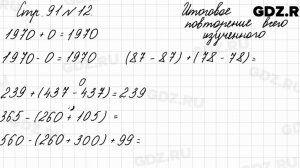 Стр. 91 № 12.
Итоговое
повторение всего
изученного
GDZ.RU
1970 + 0 = 1970
1970 - 0 = 1970
(87 - 87) + (78 - 78) =
0
239 + (437 - 437) = 239
365 - (260 + 105) =
560 - (260 + 300) + 99 =